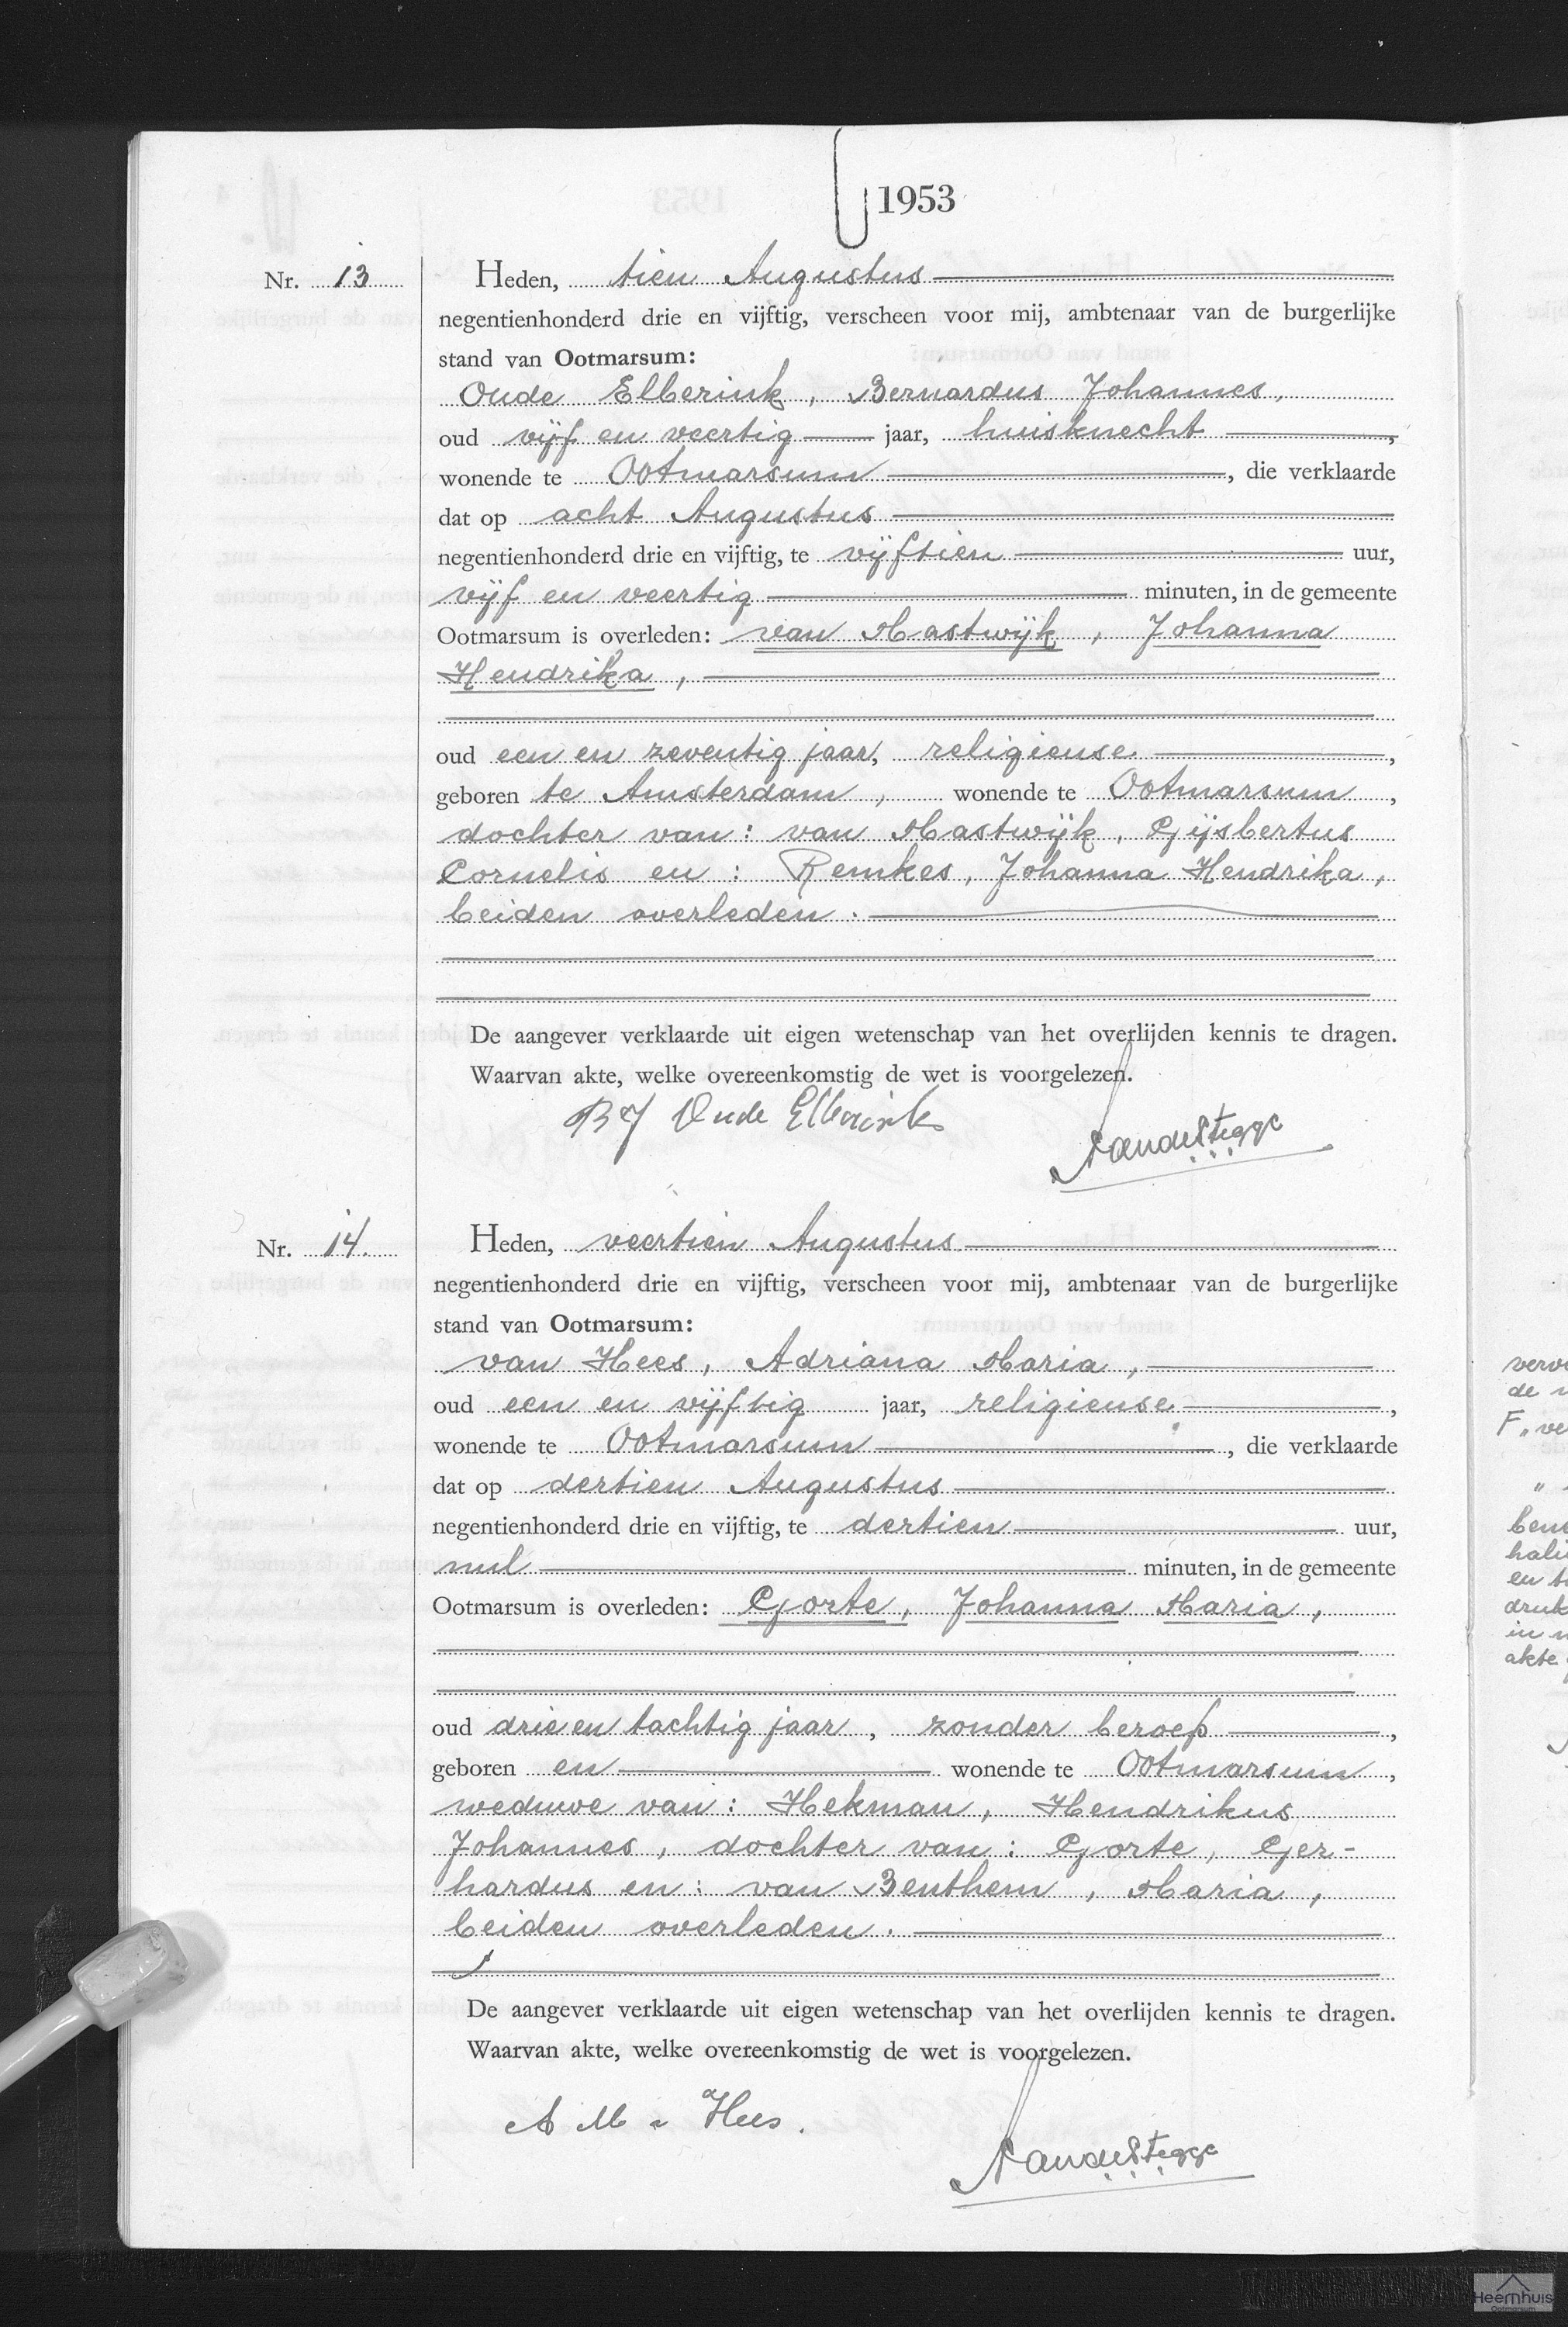 1953
Nr. 13
Heden, tien Augustus
negentienhonderd drie en vijftig, verscheen voor mij, ambtenaar van de burgerlijke
stand van Ootmarsum:
Oude Elberink, Bernardus Johannes,
oud vijf en veertig jaar, huisknecht,
wonende te Ootmarsum, die verklaarde
dat op acht Augustus
negentienhonderd drie en vijftig, te vijftien uur,
vijf en veertig minuten, in de gemeente
Ootmarsum is overleden: van Mastwijk, Johanna
Hendrika,
oud een en zeventig jaar, religieuse,
geboren te Amsterdam, wonende te Ootmarsum,
dochter van: van Mastwijk, Gijsbertus
Cornelis en: Remkes, Johanna Hendrika,
beiden overleden.
De aangever verklaarde uit eigen wetenschap van het overlijden kennis te dragen.
Waarvan akte, welke overeenkomstig de wet is voorgelezen.
BJ Oude Elberink
Nr. 14.
Heden, veertien Augustus
negentienhonderd drie en vijftig, verscheen voor mij, ambtenaar van de burgerlijke
stand van Ootmarsum:
van Hees, Adriana Maria,
oud een en vijftig jaar, religieuse,
wonende te Ootmarsum, die verklaarde
dat op dertien Augustus
negentienhonderd drie en vijftig, te dertien uur,
nul minuten, in de gemeente
Ootmarsum is overleden: Gorte, Johanna Maria,
oud drie en tachtig jaar, zonder beroep,
geboren en wonende te Ootmarsum,
weduwe van: Hekman, Hendrikus
Johannes, dochter van: Gorte, Ger-
hardus en: van Benthem, Maria,
beiden overleden.
De aangever verklaarde uit eigen wetenschap van het overlijden kennis te dragen.
Waarvan akte, welke overeenkomstig de wet is voorgelezen.
A M v Hees.
Heemhuis
Ootmarsum